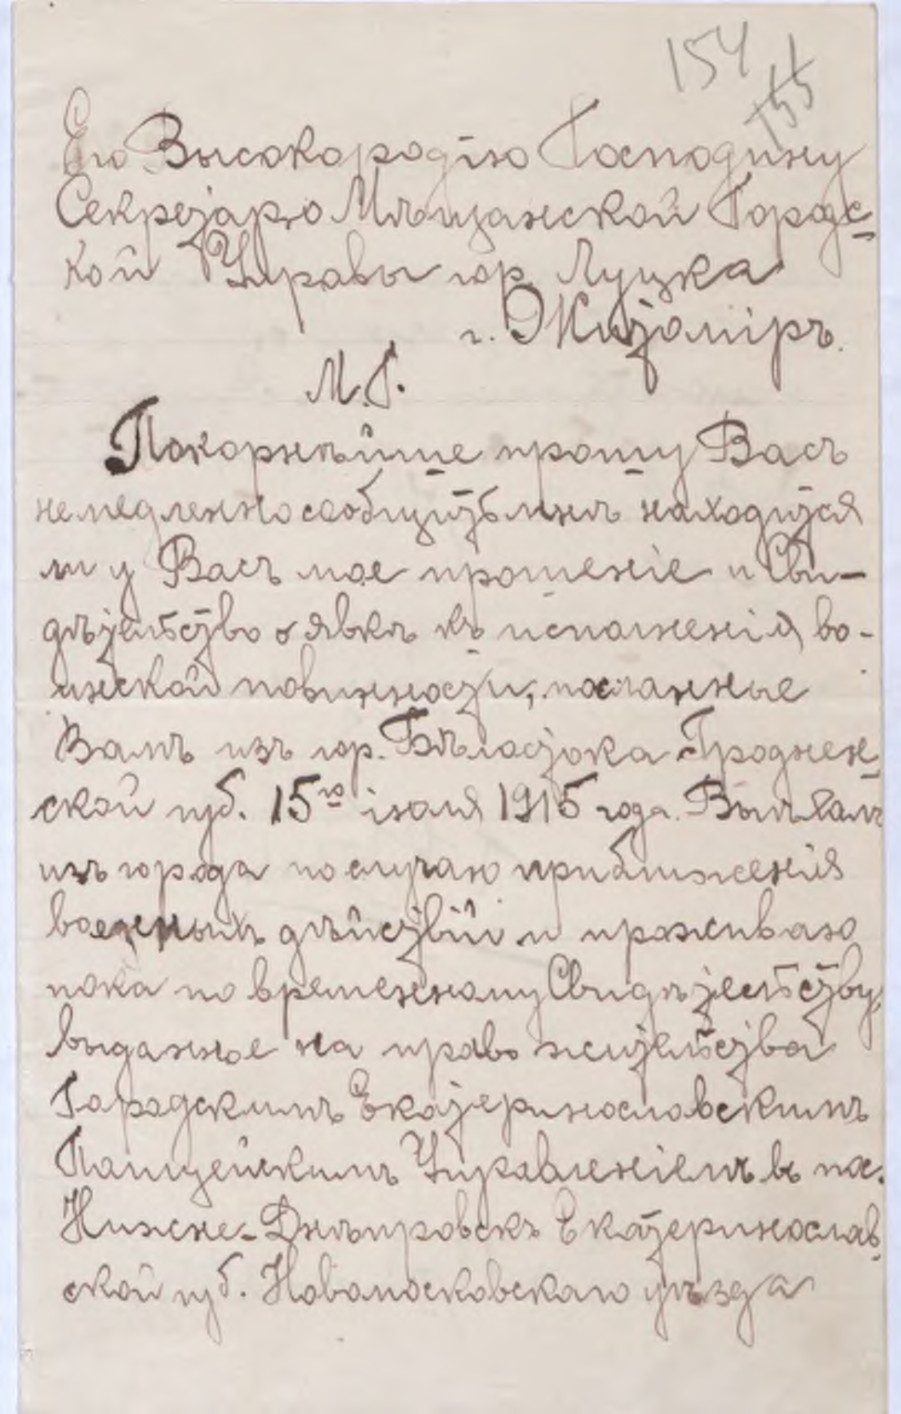 154
155
Его Высокородію Господину
Секретарю Мѣщанской Городс-
кой Управы гор. Луцка
г. Житомiръ.
М. Г.
Покорнѣйше прошу Васъ
немедленно сообщить мнѣ находится
ли у Васъ мое прошеніе и Сви-
дѣтельство о явкѣ къ исполненія во-
инской повинности, посланные
Вамъ изъ гор. Бѣлостока Гроднен-
ской губ. 15го іюля 1915 года. Выѣхалъ
изъ города по случаю приближенія
военныхъ дѣйствій и проживаю
пока по временному Свидѣтельству,
выданное на право жительства
Городскимъ Екатеринославскимъ
Полицейскимъ Управленіемъ въ пос.
Нижне-Днѣпровскъ Екатеринослав-
ской губ. Новомосковскаго уѣзда